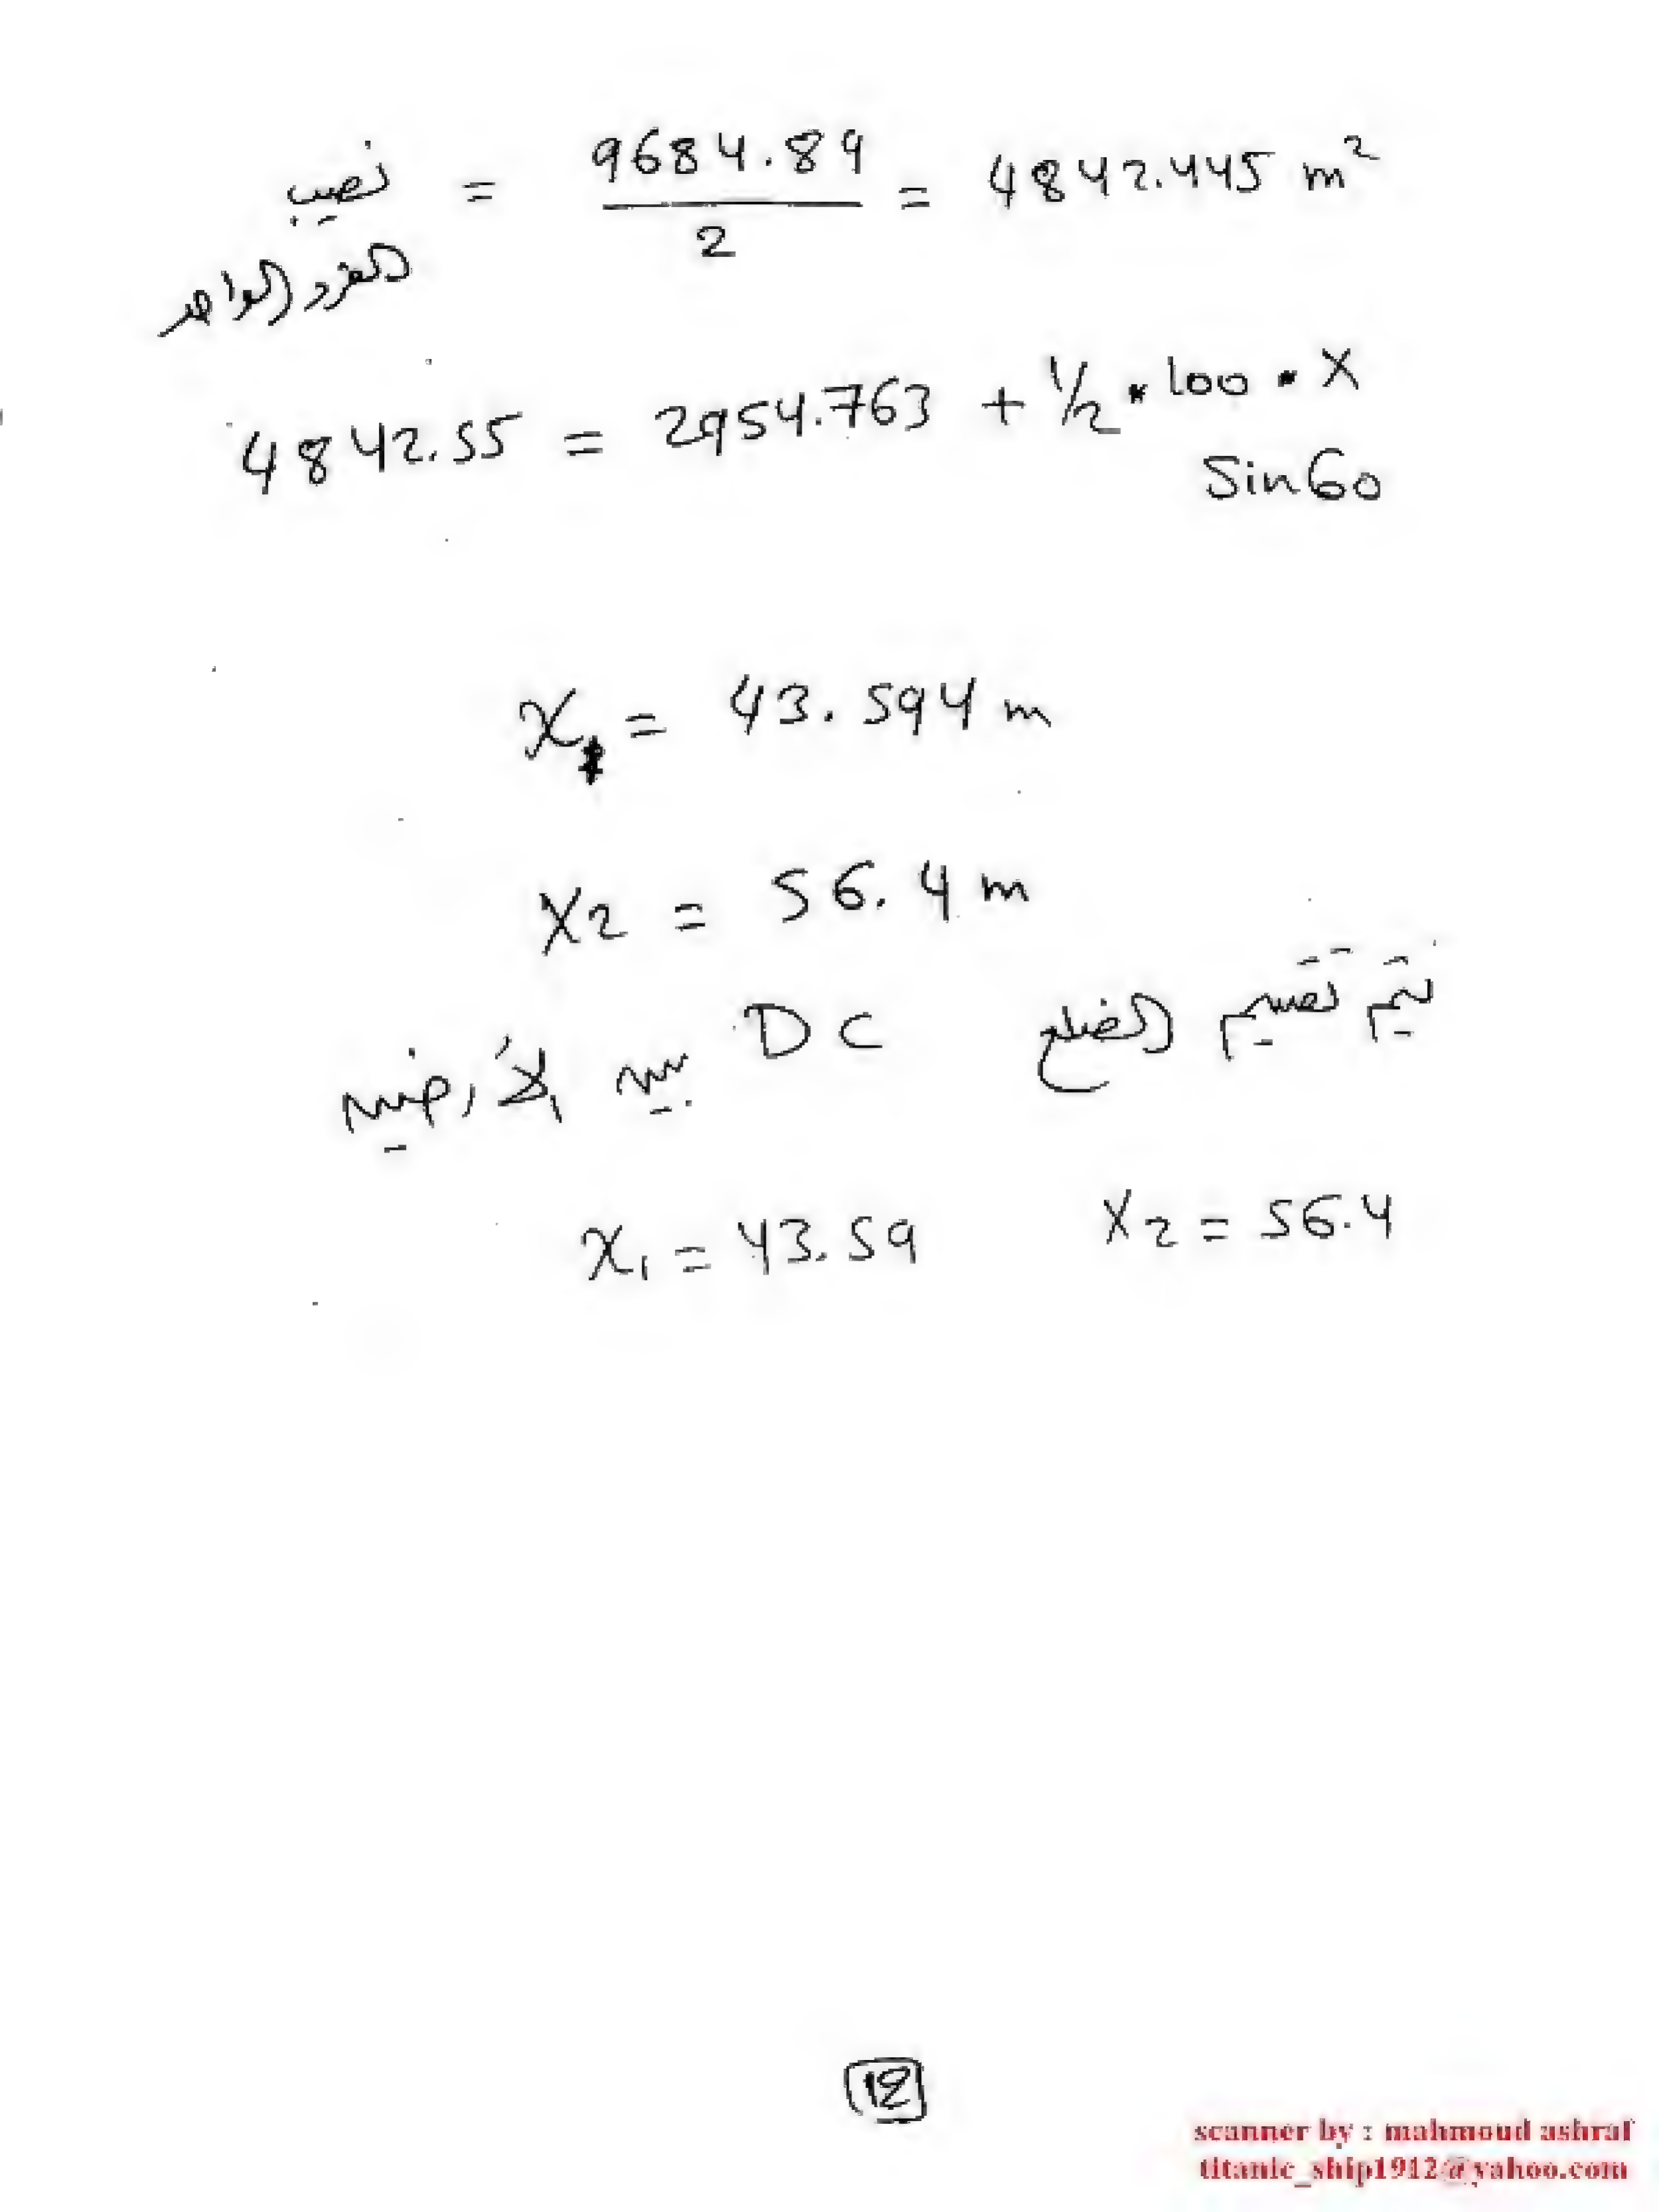 نصيب = 9684.89 / 2 = 4842.445 m²
الفرد الواحد
4842.55 = 2954.763 + 1/2 * 100 * X
Sin60
X₁ = 43.594 m
X2 = 56.4 m
يتم تقسيم الضلع DC
بين الأرضين
X₁ = 43.59 X2 = 56.4
12
scanner by : mahmoud ashraf
titanic_ship1912@yahoo.com